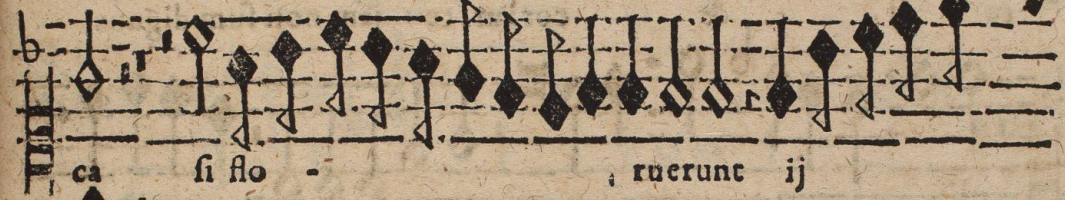 ca ſi flo - ruerunt ij